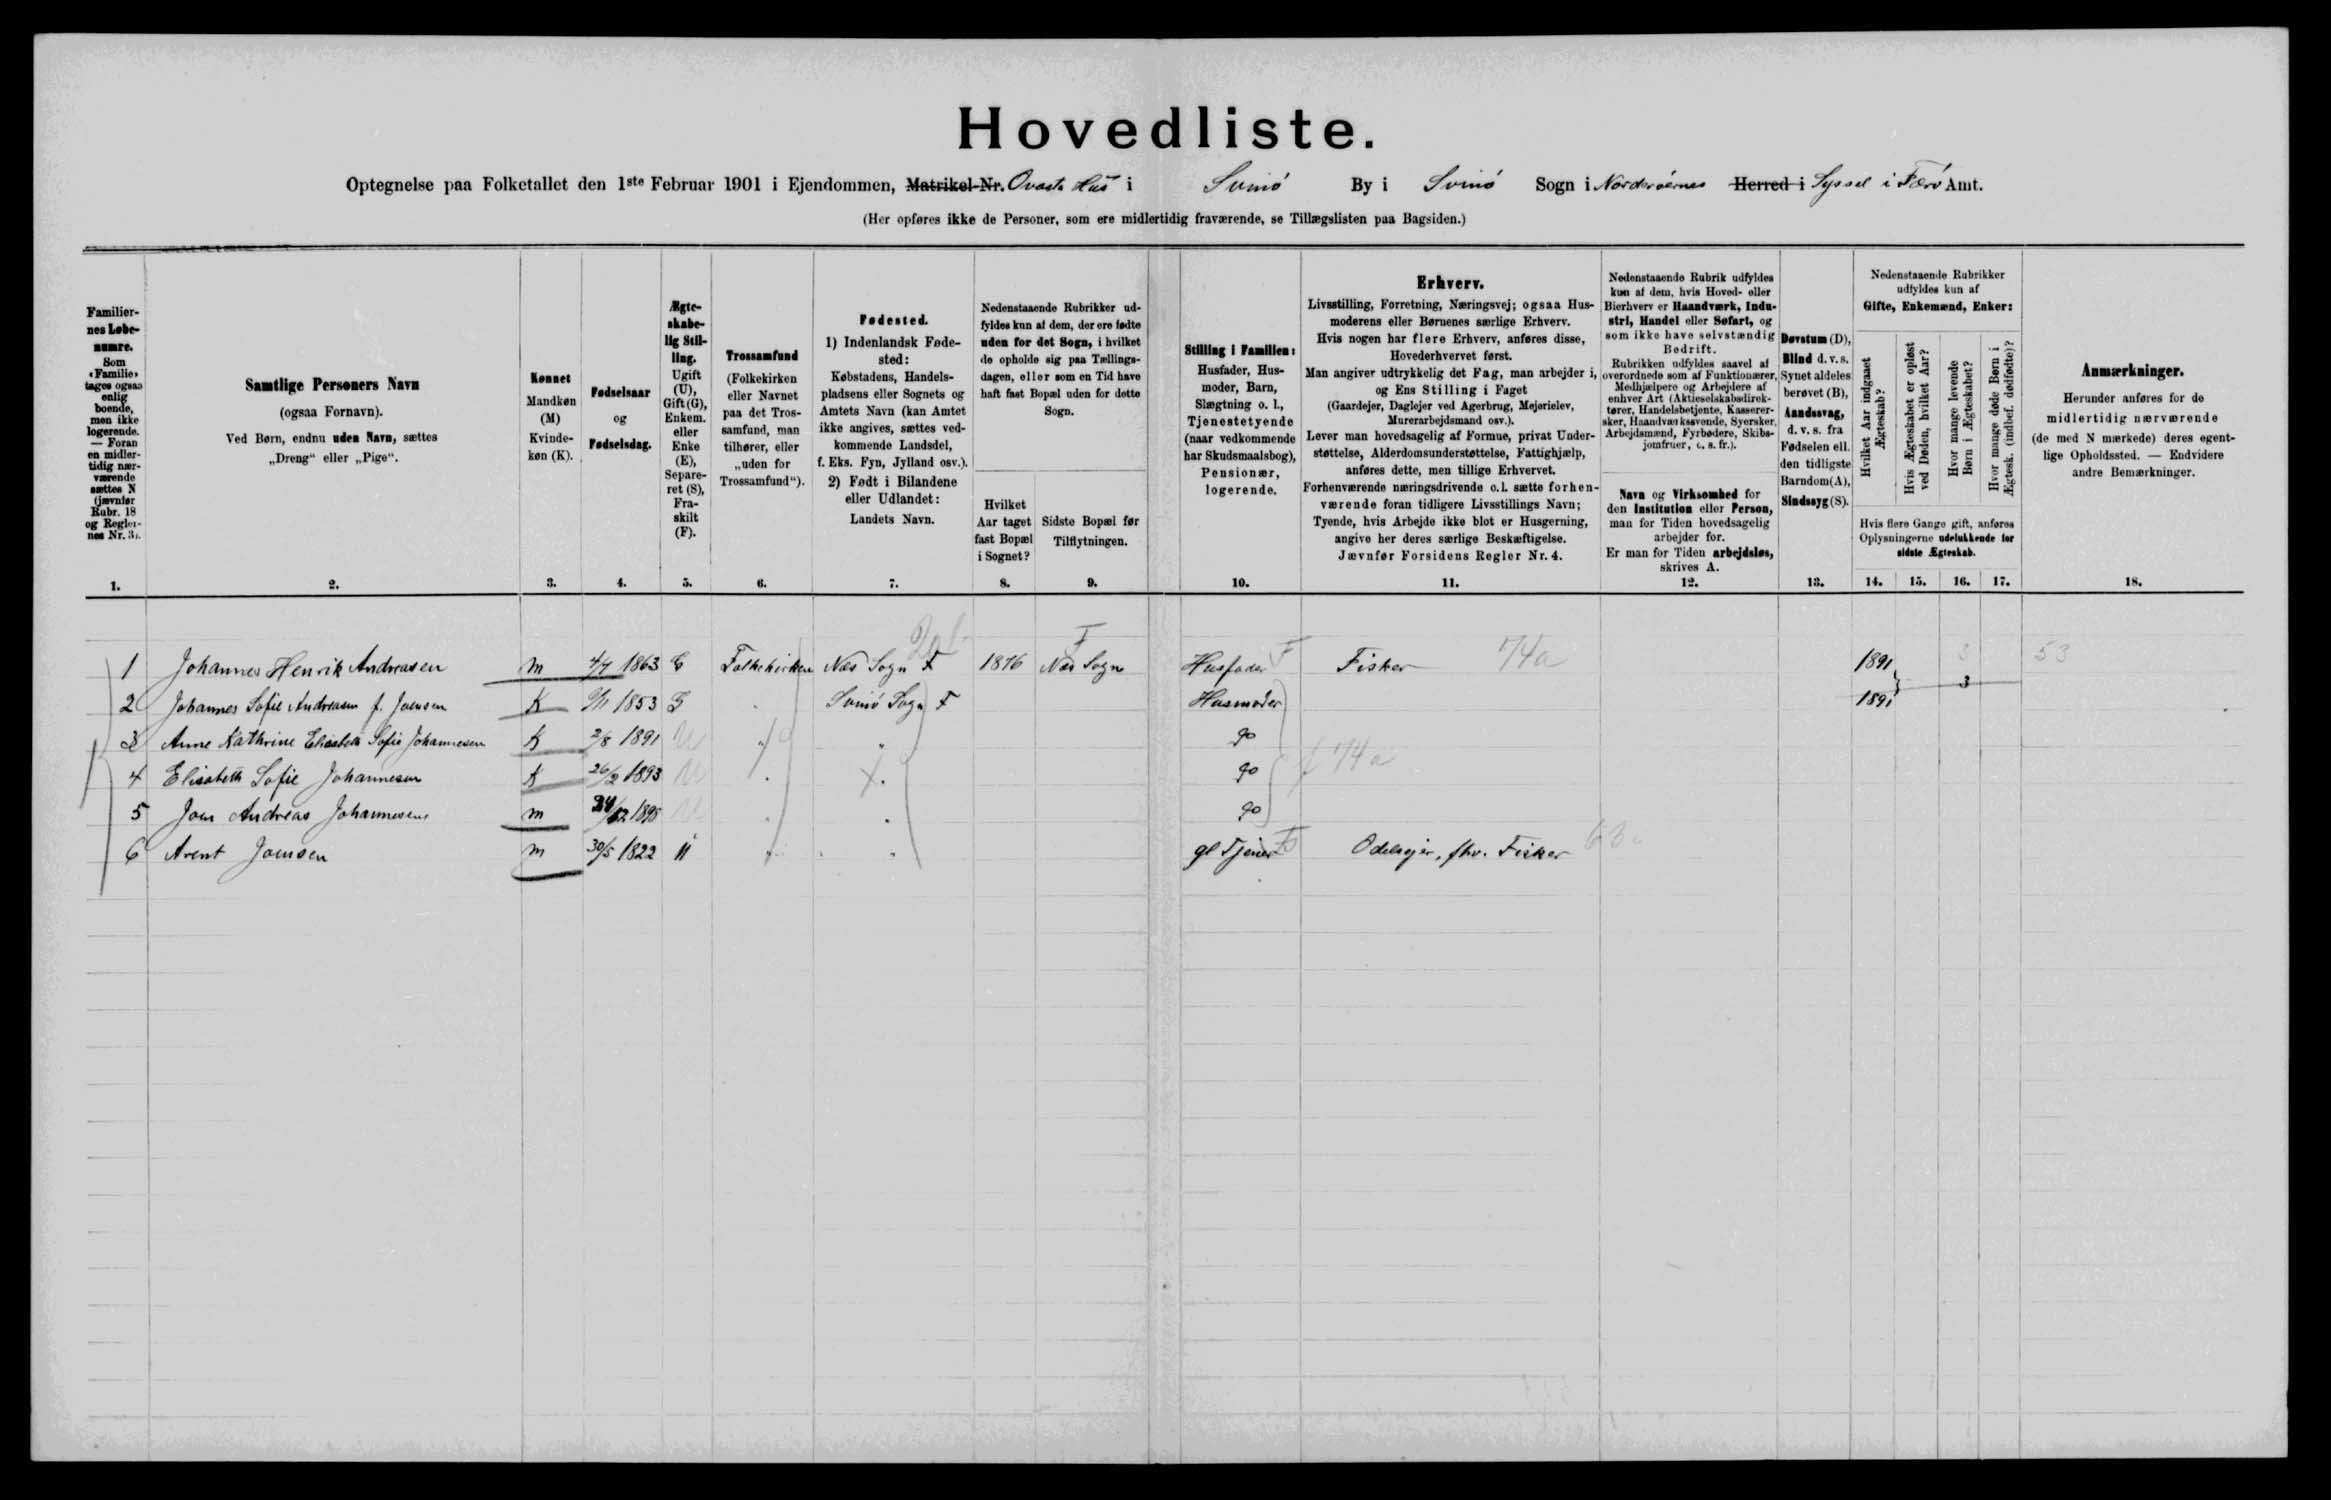 Hovedliste.
Optegnelse paa Folketallet den 1ste Februar 1901 i Ejendommen, Matrikel-Nr. Ovaste Hus i Svinö By i Svinö Sogn i Norderöernes Herred i Syssel i Færö Amt.
(Her opføres ikke de Personer, som ere midlertidig fraværende, se Tillægslisten paa Bagsiden.)
Familier-
nes Løbe-
numre.
Som
„Familie“
tages ogsaa
enlig
boende,
men ikke
logerende.
— Foran
en midler-
tidig nær-
værende
sættes N
(jævnfør
Rubr. 18
og Regler-
nes Nr. 3).
1.
Samtlige Personers Navn
(ogsaa Fornavn).
Ved Børn, endnu uden Navn, sættes
„Dreng“ eller „Pige“.
2.
Kønnet
Mandkøn
(M)
Kvinde-
køn (K).
3.
Fødselsaar
og
Fødselsdag.
4.
Ægte-
skabe-
lig Stil-
ling.
Ugift
(U),
Gift (G),
Enkem.
eller
Enke
(E),
Separe-
ret (S),
Fra-
skilt
(F).
5.
Trossamfund
(Folkekirken
eller Navnet
paa det Tros-
samfund, man
tilhører, eller
„uden for
Trossamfund“).
6.
Fødested.
1) Indenlandsk Føde-
sted:
Købstadens, Handels-
pladsens eller Sognets og
Amtets Navn (kan Amtet
ikke angives, sættes ved-
kommende Landsdel,
f. Eks. Fyn, Jylland osv.).
2) Født i Bilandene
eller Udlandet:
Landets Navn.
7.
Nedenstaaende Rubrikker ud-
fyldes kun af dem, der ere fødte
uden for det Sogn, i hvilket
de opholde sig paa Tællings-
dagen, eller som en Tid have
haft fast Bopæl uden for dette
Sogn.
Hvilket
Aar taget
fast Bopæl
i Sognet?
8.
Sidste Bopæl før
Tilflytningen.
9.
Stilling i Familien:
Husfader, Hus-
moder, Barn,
Slægtning o. l.,
Tjenestetyende
(naar vedkommende
har Skudsmaalsbog),
Pensionær,
logerende.
10.
Erhverv.
Livsstilling, Forretning, Næringsvej; ogsaa Hus-
moderens eller Børnenes særlige Erhverv.
Hvis nogen har flere Erhverv, anføres disse,
Hovederhvervet først.
Man angiver udtrykkelig det Fag, man arbejder i,
og Ens Stilling i Faget
(Gaardejer, Daglejer ved Agerbrug, Mejerielev,
Murerarbejdsmand osv.).
Lever man hovedsagelig af Formue, privat Under-
støttelse, Alderdomsunderstøttelse, Fattighjælp,
anføres dette, men tillige Erhvervet.
Forhenværende næringsdrivende o.l. sætte forhen-
værende foran tidligere Livsstillings Navn;
Tyende, hvis Arbejde ikke blot er Husgerning,
angive her deres særlige Beskæftigelse.
Jævnfør Forsidens Regler Nr. 4.
11.
Nedenstaaende Rubrik udfyldes
kun af dem, hvis Hoved- eller
Bierhverv er Haandværk, Indu-
stri, Handel eller Søfart, og
som ikke have selvstændig
Bedrift.
Rubrikken udfyldes saavel af
overordnede som af Funktionærer,
Medhjælpere og Arbejdere af
enhver Art (Aktieselskabsdirek-
tører, Handelsbetjente, Kasserer-
sker, Haandværkssvende, Syersker,
Arbejdsmænd, Fyrbødere, Skibs-
jomfruer, o. s. fr.).
Navn og Virksomhed for
den Institution eller Person,
man for Tiden hovedsagelig
arbejder for.
Er man for Tiden arbejdsløs,
skrives A.
12.
Døvstum (D),
Blind d. v. s.
Synet aldeles
berøvet (B),
Aandssvag,
d. v. s. fra
Fødselen ell.
den tidligste
Barndom (A),
Sindssyg (S).
13.
Nedenstaaende Rubrikker
udfyldes kun af
Gifte, Enkemænd, Enker:
Hvilket Aar indgaaet
Ægteskab?
Hvis Ægteskabet er opløst
ved Døden, hvilket Aar?
Hvor mange levende
Børn i Ægteskabet?
Hvor mange døde Børn i
Ægtesk. (indbef. dødfødte)?
Hvis flere Gange gift, anføres
Oplysningerne udelukkende for
sidste Ægteskab.
14. 15. 16. 17.
Anmærkninger.
Herunder anføres for de
midlertidig nærværende
(de med N mærkede) deres egent-
lige Opholdssted. — Endvidere
andre Bemærkninger.
18.
1 Johannes Henrik Andreasen m 4/7 1863 G Folkekirken Næs Sogn F 1876 Næs Sogn Husfader F Fisker 74a 1891 3 53
2 Johannes Sofie Andreasen f. Joensen K 1853 G Svinö Sogn F Husmoder 1891 3
3 Anne Kathrine Elisabeth Sofie Johannesen K 2/8 1891 U " " go
4 Elisabeth Sofie Johannesen K 26/2 1893 U " " go f 74a
5 Joen Andreas Johannesen m 24/12 1895 U " " go
6 Arent Joensen m 30/5 1822 U " " gl Tjener Odelsejer, fhv. Fisker